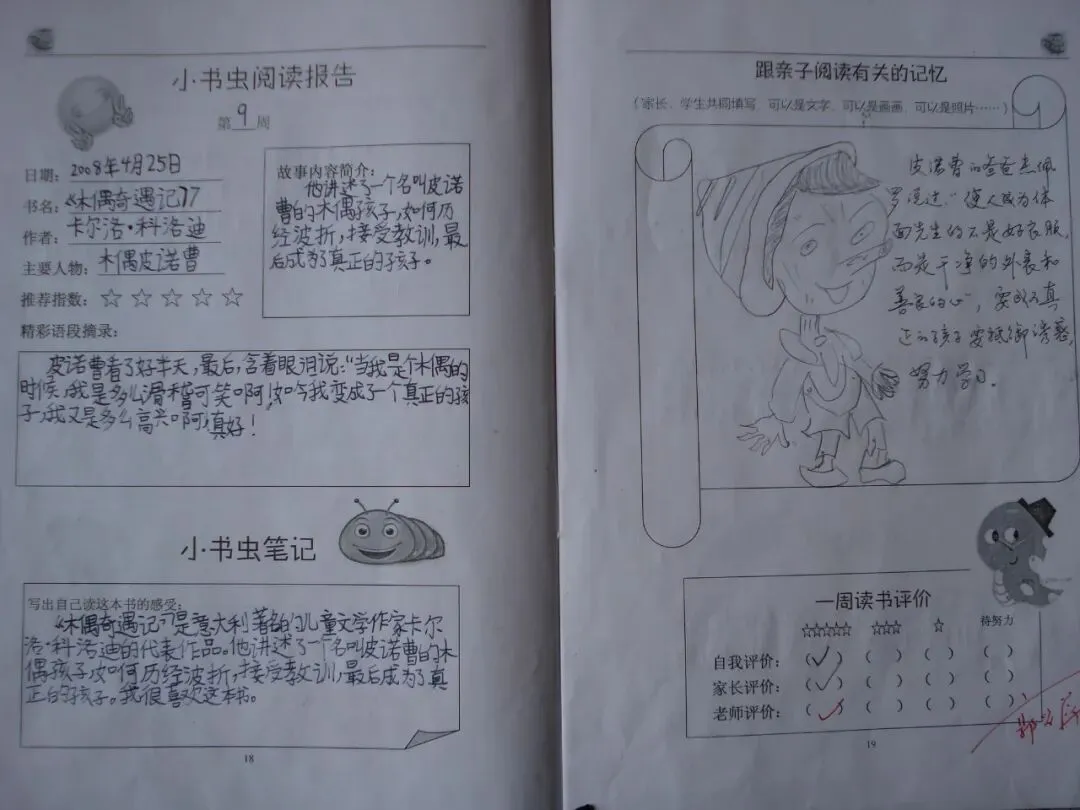 小书虫阅读报告
第9周
日期：2008年4月25日
书名：《木偶奇遇记》
作者：卡尔洛·科洛迪
主要人物：木偶皮诺曹
推荐指数：☆ ☆ ☆ ☆ ☆
故事内容简介：
他讲述了一个名叫皮诺
曹的木偶孩子，如何历
经波折，接受教训，最
后成为了真正的孩子。
精彩语段摘录：
皮诺曹看了好半天，最后，含着眼泪说："当我是个木偶的
时候，我是多么滑稽可笑啊！如今我变成了一个真正的孩
子，我又是多么高兴啊，真好！
小书虫笔记
写出自己读这本书的感受：
《木偶奇遇记》是意大利著名的儿童文学作家卡尔
洛·科洛迪的代表作品。他讲述了一个名叫皮诺曹的木
偶孩子，如何历经波折，接受教训，最后成为了真
正的孩子。我很喜欢这本书。
18
跟亲子阅读有关的记忆
（家长、学生共同填写 可以是文字，可以是画画，可以是照片……）
皮诺曹的爸爸杰佩
罗说过："使人成为体
面先生的不是好衣服，
而是干净的外表和
善良的心"，要成为真
正的孩子要抵御诱惑，
努力学习。
一周读书评价
☆☆☆☆☆ ☆☆☆ ☆ 待努力
自我评价：（✓） （ ） （ ） （ ）
家长评价：（✓） （ ） （ ） （ ）
老师评价：（✓） （ ） （ ） （ ）
19